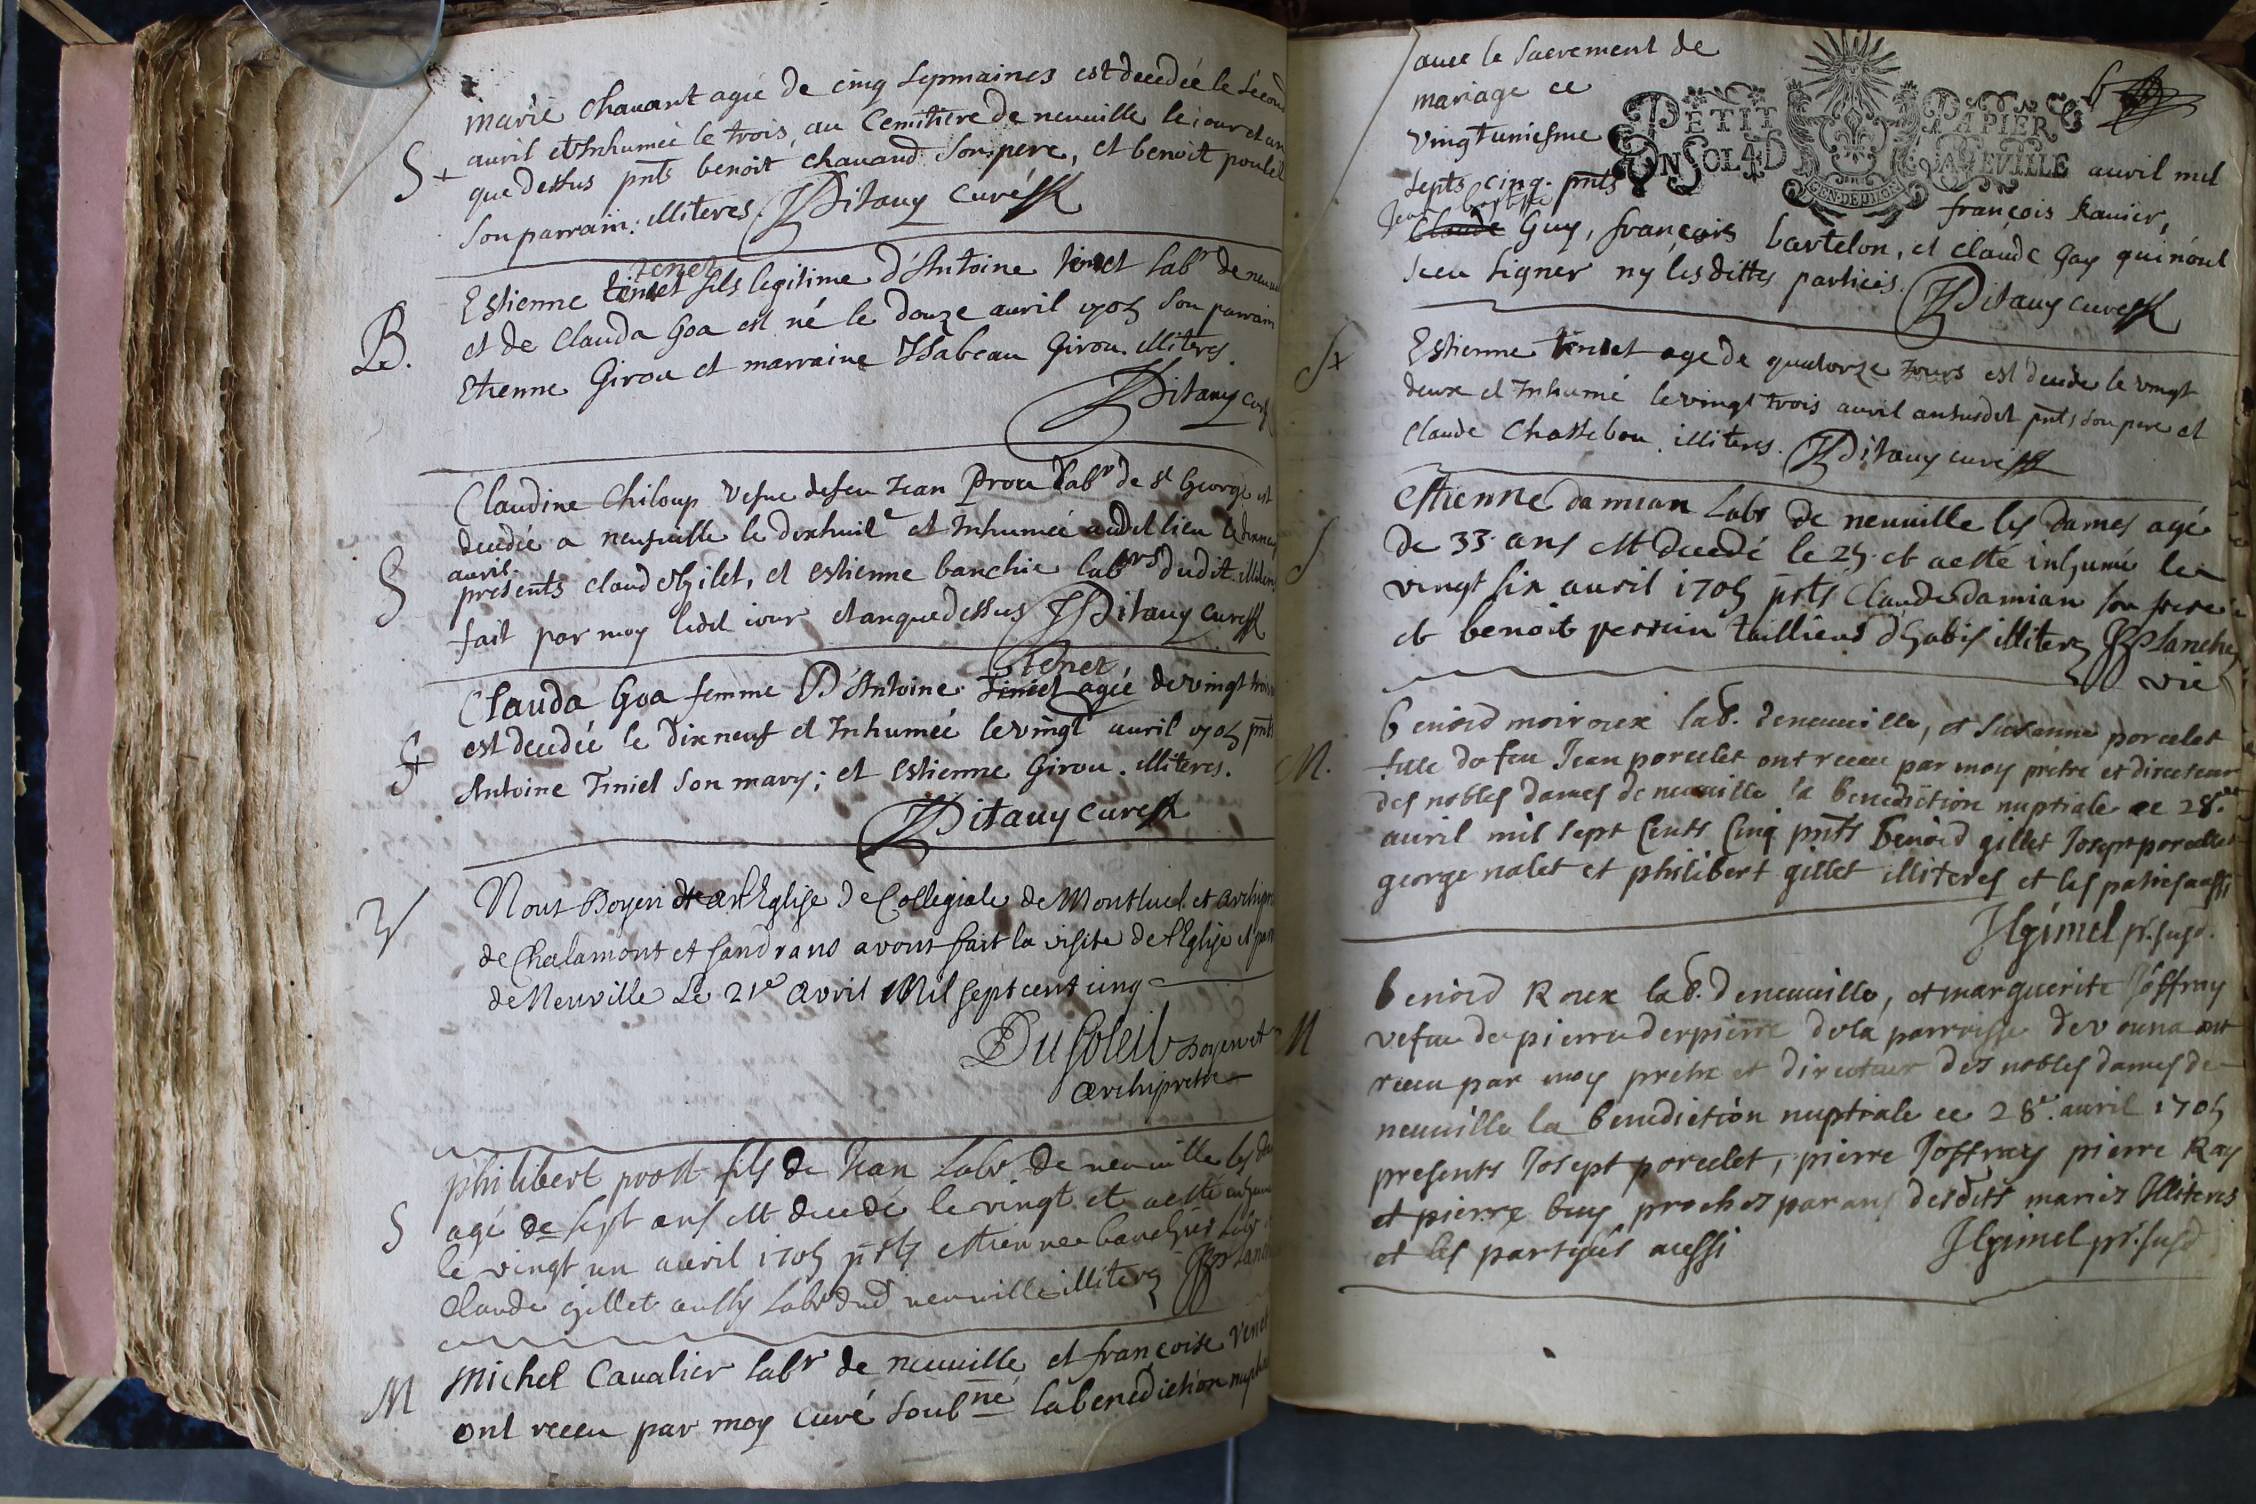 marie chauant agée de cinq sepmaines est decedée le second
auril et Inhumée le trois, au Cemitiere de neuuille le iour et an
S+
que dessus pnts benoit chauand son pere, et benoit poulet
son parrain. illiteres. JDitauy curé
tenet
Estienne fils legitime d'Antoine labr de neuuille
B.
et de Clauda Goa est né le douze auril 1705 son parrain
Etienne Girou et marraine Isabeau Girou. illiteres.
JDitauy curé
Claudine Chiloup vefue defeu Jean Prou labr de St George est
decedée a neufuille le dixhuit e et Inhumée audit lieu le dixneuf
auril.
S
presents claude Gilet, et estienne banchie labrs dudit. illiteres
fait par moy ledit iour et anquedessus JDitauy curé
tenet
Clauda Goa femme D'Antoine agée de vingt trois
S+
est decedée le dixneuf et Inhumée le vingt auril 1705 pnts
Antoine Tiniet son mary; et Estienne Girou. illiteres.
JDitauy curé
V
Nous Doyen de l'Eglise Collegiale de Montluel et archipretre
de Chalamont et Sandrans avons fait la visite de l'Eglise et
de Neuville Le 21e avril Mil sept cent cinq
DuSoleil Doyen et
archipretre
philibert prost fils de Jean labr de neuuille les
S
agé de sept ans est decedé le vingt et a esté
le vingt un auril 1705 pnts estienne banchie labr
Claude gillet aussy labr dud neuuille illiteres
M
Michel Caualier labr de neuuille et françoise
ont receu par moy curé soubné la benediction
auec le sacrement de
mariage ce
vingtuniesme
PETIT PAPIER
UN SOL 4 D LA FEUILLE
GEN. DE DIJON
6
auril mil
septs cinq. pnts françois
Jean baptiste
Claude Guy, françois bartelon, et claude Gay qui n'ont
sceu signer ny lesdittes parties. JDitauy curé
S+
Estienne agé de quatorze Jours est decedé le vingt
deux et Inhumé le vingt trois auril an susdit pnts son pere et
Claude Chassebou. illiteres. JDitauy curé
Estienne damian labr de neuuille les dames agé
S
de 33 ans est decedé le 25 et a esté inhumé le
vingt six auril 1705 pnts Claude damian son frere
et benoit perrin taillieur d'habis illiteres JPlanche
vic
benoid moiroux lab. deneuuille, et susanne porcelet
M.
fille de feu Jean porcelet ont receu par moy prêtre et directeur
des nobles dames de neuuille la benediction nuptiale ce 28.
auril mil sept Cents Cinq pnts benoid gillet Josept porcellet
george nalet et philibert gillet illiteres et les parties aussi
JLgimel pr. susd.
benoid Roux lab. deneuuille, et marguerite Joffray
M
vefue de pierre derpierre dela parroisse de vouna ont
receu par moy pretre et directeur des nobles dames de
neuuille la benediction nuptiale ce 28e. auril 1705
presents Josept porcelet, pierre Joffray pierre Ray
et pierre buy proches parans desdits mariés Illiteres
et les partyes aussi JLgimel pr. susd